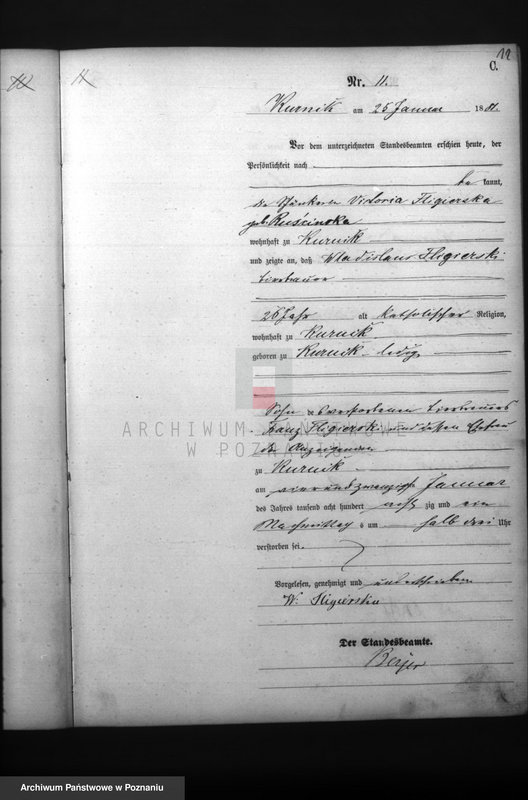 11
12
C.
Nr. 11.
Kurnik am 25 Januar 1881.
Vor dem unterzeichneten Standesbeamten erschien heute, der
Persönlichkeit nach
be kannt,
die Victoria Fligierska
geb. Ruścinska
wohnhaft zu Kurnik
und zeigte an, daß Wladislaus Fligierski
26 Jahr alt katholischer Religion,
wohnhaft zu Kurnik
geboren zu Kurnik ledig,
Sohn des verstorbenen
Franz Fligierski und dessen Ehefrau
der Anzeigenden
zu Kurnik
am vierundzwanzigsten Januar
des Jahres tausend acht hundert acht zig und ein
Nachmittag s um halb drei Uhr
verstorben sei.
Vorgelesen, genehmigt und unterschrieben
W. Fligierska
Der Standesbeamte.
ARCHIWUM PAŃSTWOWE
W POZNANIU
Archiwum Państwowe w Poznaniu